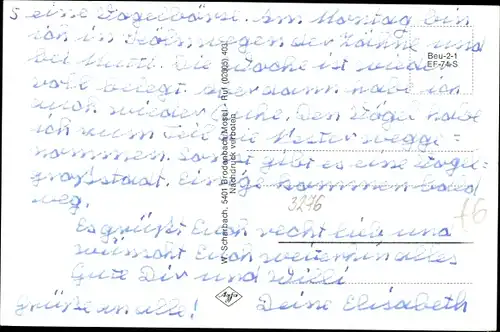 5 eine Vogelbörse. Am Montag bin
ich in Köln wegen der Zähne und
bei Mutti. Die Woche ist wieder
voll belegt. aber dann habe ich
auch wieder Ruhe. Den Vögel habe
ich zum Teil die Nester wegge=
nommen. sonst gibt es eine Vogel
großstadt. Einige kommen bald
weg.
Es grüßt Euch recht lieb und
wünscht Euch weiterhin alles
Gute Dir und Willi
Grüße an alle! Deine Elisabeth
Beu-2-1
EF-74-S
W. Scharbach, 5401 Brodenbach/Mosel - Ruf (02605) 400
Nachdruck verboten
3276
Agfa